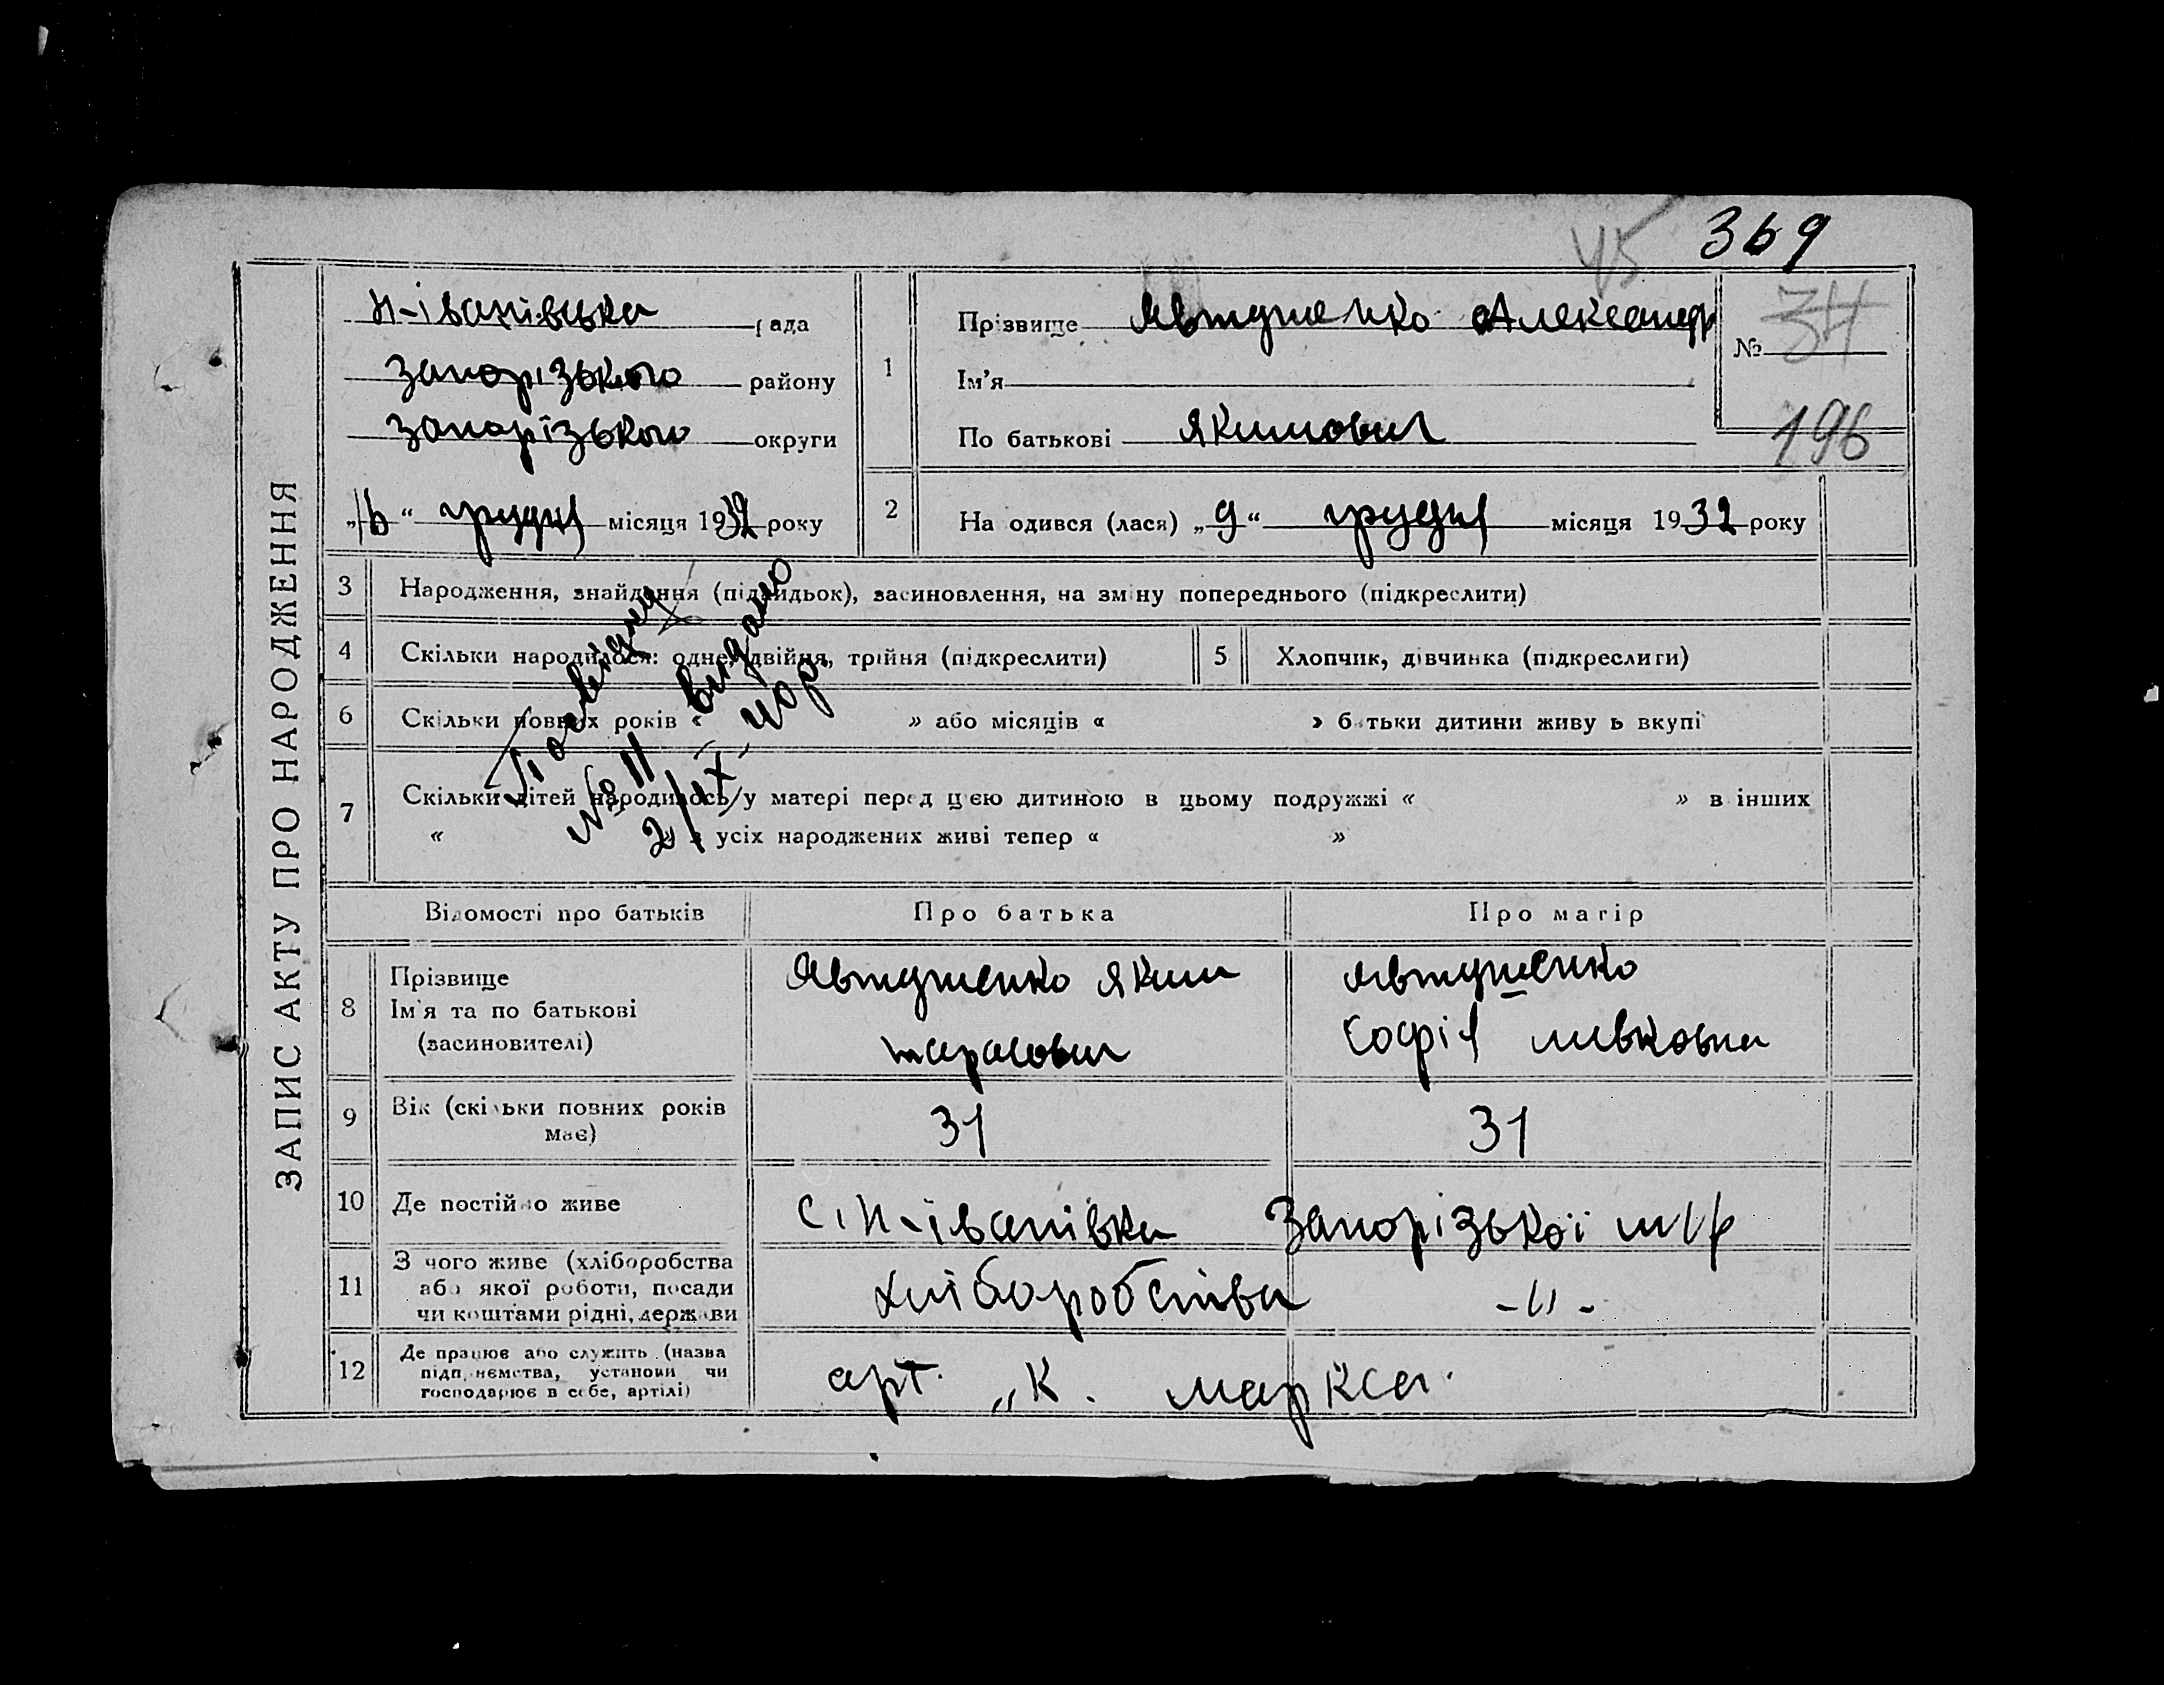 369
45
ЗАПИС АКТУ ПРО НАРОДЖЕННЯ
Н-Іванівська рада
Запорізького району
Запорізького округи
„16“ грудня місяця 1932 року
1
Прізвище Явтушенко Александр
Ім'я
По батькові Якимович
№ 34
196
2
На одився (лася) „9“ грудня місяця 1932 року
3 Народження, знайдення (підкидьок), засиновлення, на зміну попереднього (підкреслити)
4 Скільки народилося: одне, двійня, трійня (підкреслити)
5 Хлопчик, дівчинка (підкреслити)
6 Скільки повних років « » або місяців « » батьки дитини живуть вкупі
7 Скільки дітей народилось у матері перед цією дитиною в цьому подружжі « » в інших
« » з усіх народжених живі тепер « »
видано
№ 11
2/IX
Відомості про батьків Про батька Про матір
8 Прізвище
Ім'я та по батькові
(засиновителі)
Явтушенко Яким
Тарасович
Явтушенко
Софія Левковна
9 Вік (скільки повних років
має)
31 31
10 Де постійно живе
с. Н-Іванівка Запорізької
11 З чого живе (хліборобства
або якої роботи, посади
чи коштами рідні, держави
хліборобства -〃-
12 Де працює або служить (назва
підприємства, установи чи
господарює в себе, артілі)
арт. „К. Маркса